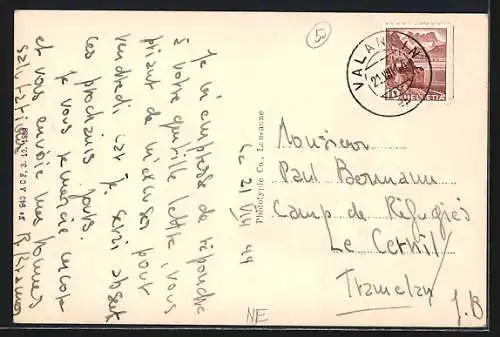 5
VALANGIN
21.VII.44
HELVETIA
Le 21 VII 44
Je m'empresse de répondre
à votre gentille lettre, vous
priant de m'excuser pour
vendredi car je serai absent
ces prochains jours.
Je vous remercie encore
et vous envoie mes bonnes
salutations
Phototypie Co., Lausanne
Monsieur
Paul Bermann
Camp de Réfugiés
Le Cernil
Tramelan
J.B
NE